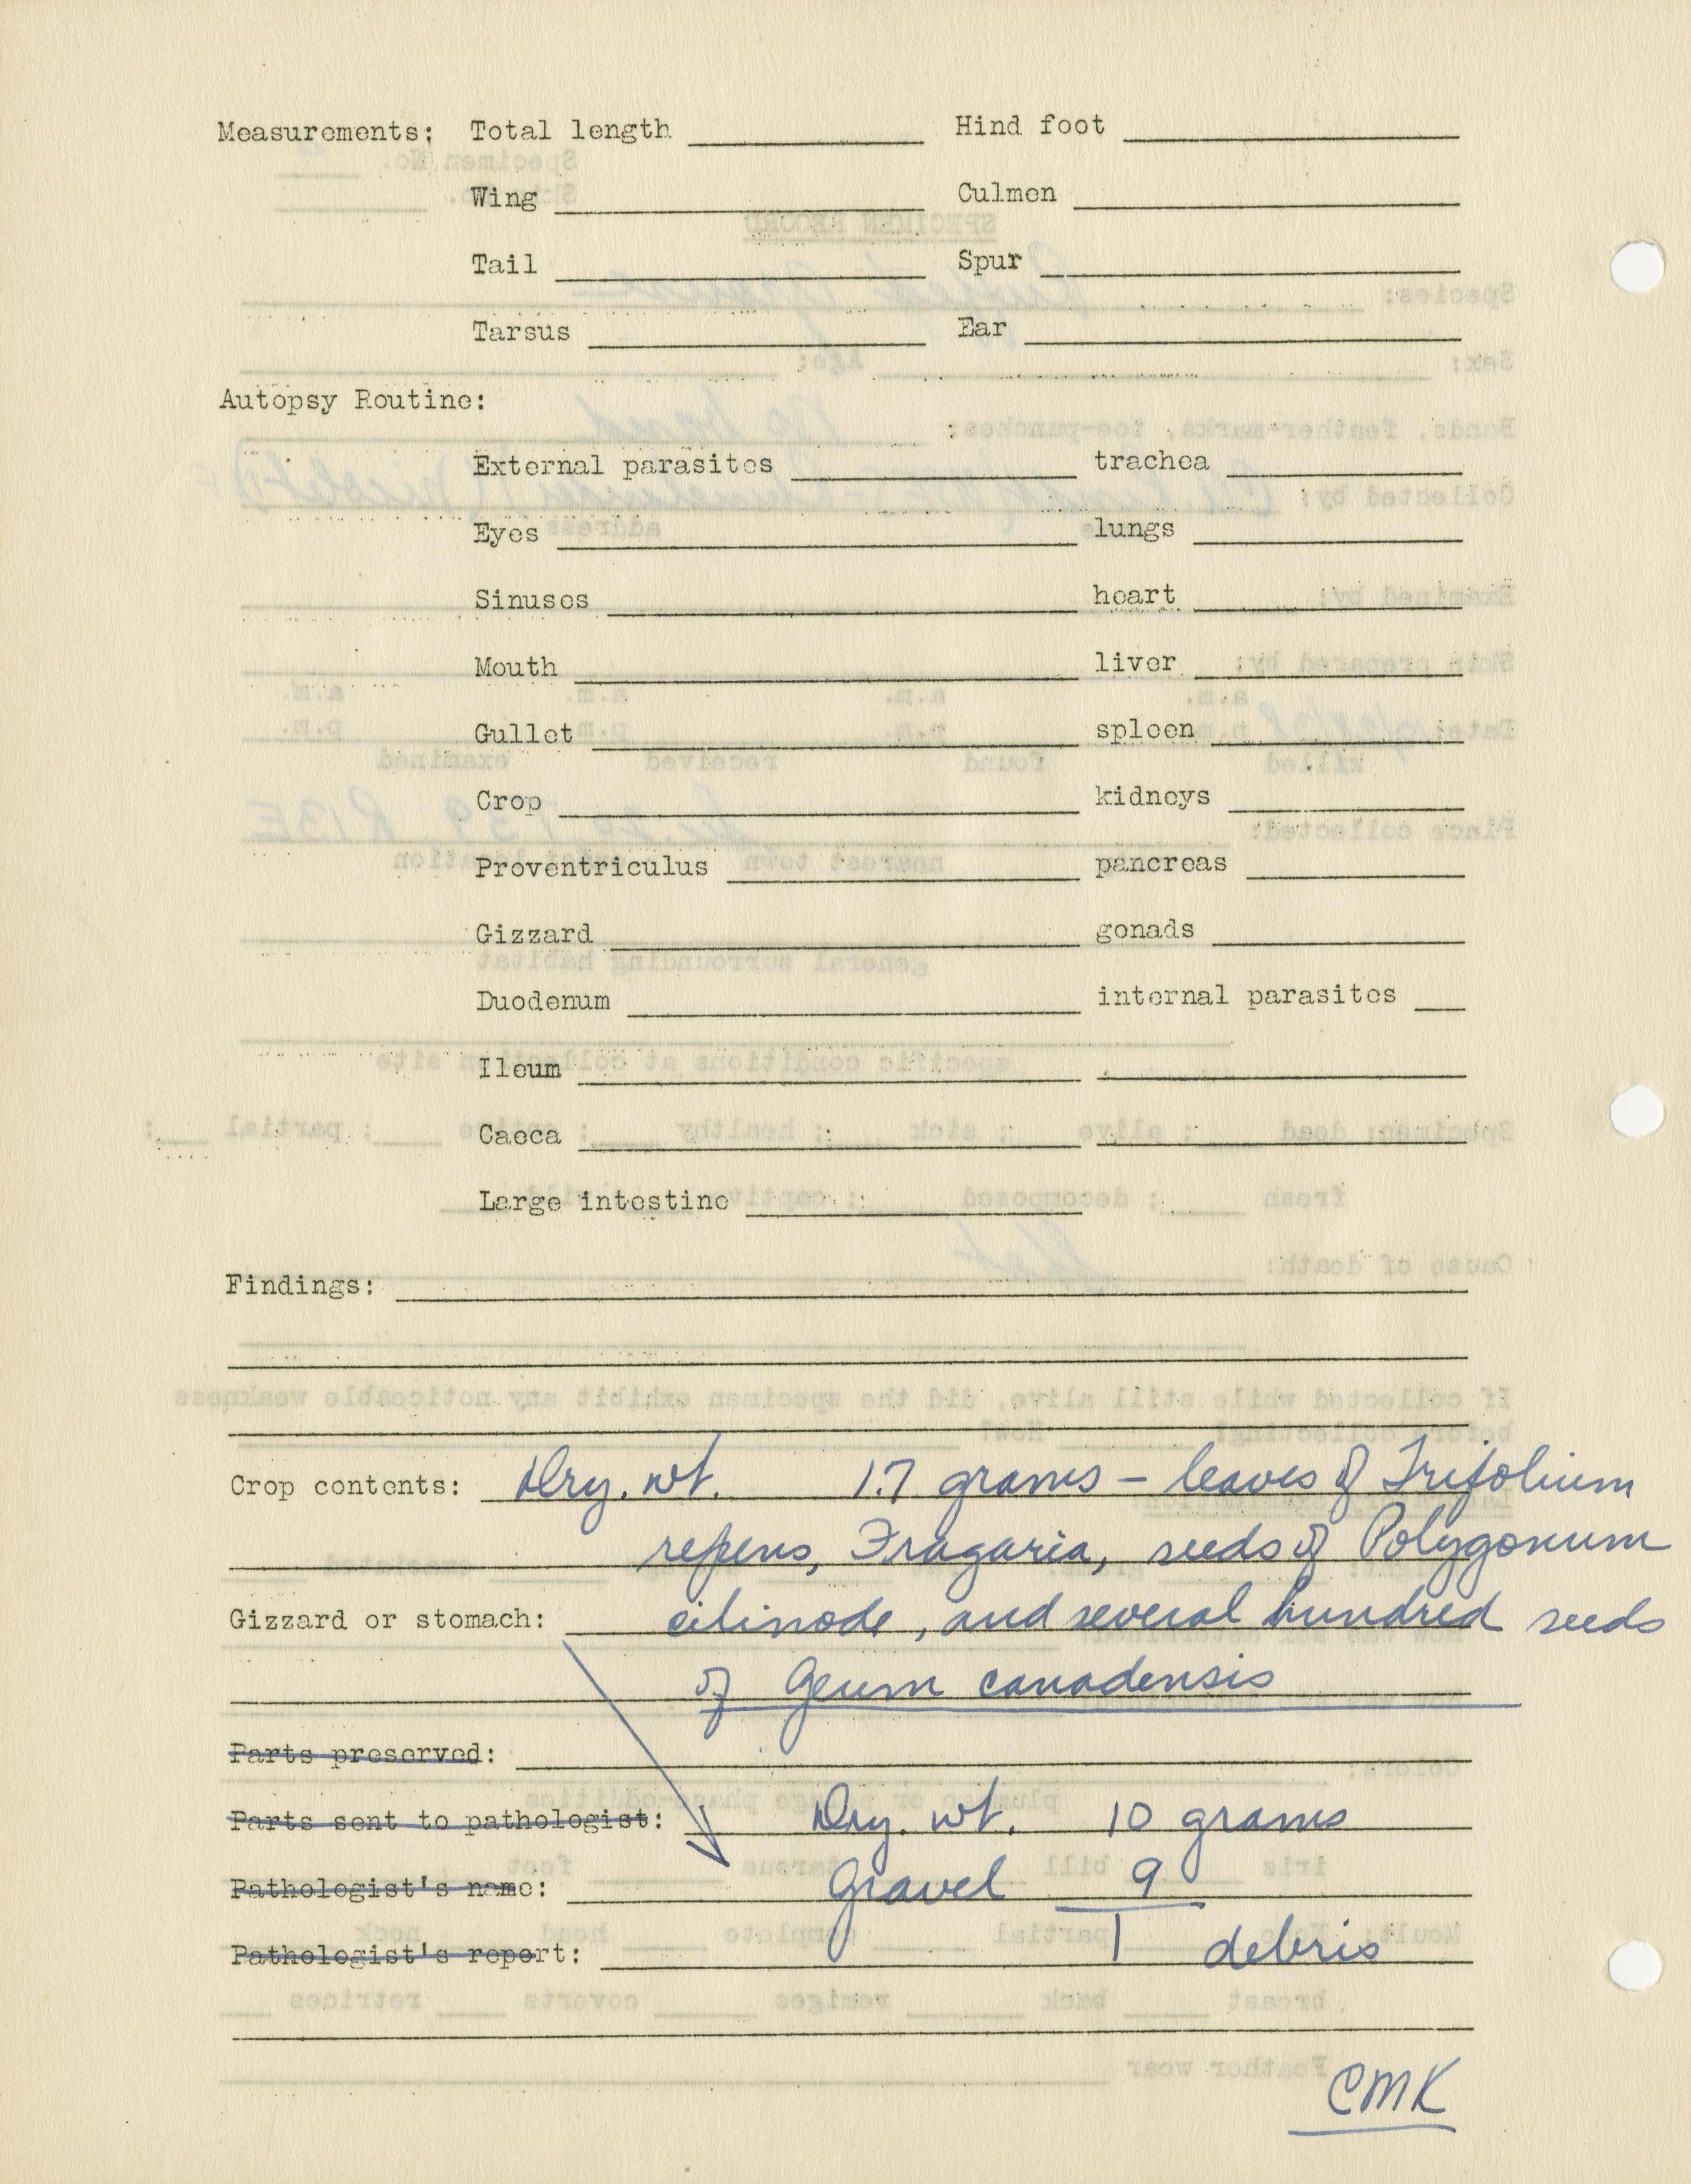 Measurements: Total length ____ Hind foot ____
Wing ____ Culmen ____
Tail ____ Spur ____
Tarsus ____ Ear ____
Autopsy Routine:
External parasites ____ trachea ____
Eyes ____ lungs ____
Sinuses ____ heart ____
Mouth ____ liver ____
Gullet ____ spleen ____
Crop ____ kidneys ____
Proventriculus ____ pancreas ____
Gizzard ____ gonads ____
Duodenum ____ internal parasites ____
Ileum ____
Caeca ____
Large intestine ____
Findings: ____
Crop contents: Dry. wt. 1.7 grams – leaves of Trifolium
repens, Fragaria, seeds of Polygonum
Gizzard or stomach: cilinode, and several hundred seeds
of Geum canadensis
Parts preserved:
Parts sent to pathologist: Dry. wt. 10 grams
Pathologist's name: Gravel 9
Pathologist's report: 1 debris
CMK